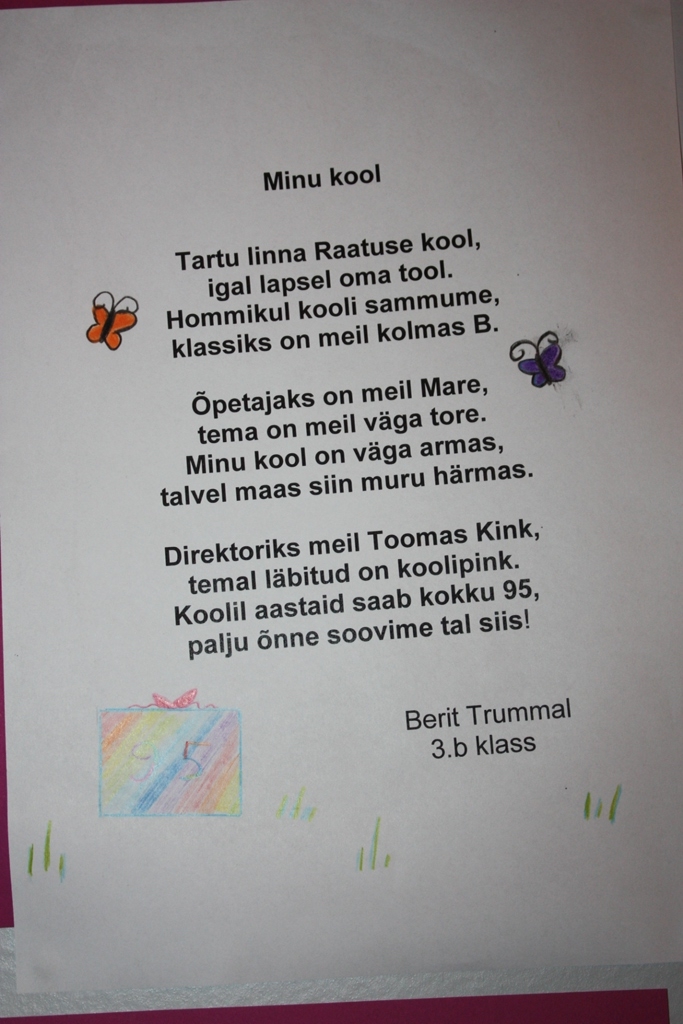 Minu kool
Tartu linna Raatuse kool,
igal lapsel oma tool.
Hommikul kooli sammume,
klassiks on meil kolmas B.
Õpetajaks on meil Mare,
tema on meil väga tore.
Minu kool on väga armas,
talvel maas siin muru härmas.
Direktoriks meil Toomas Kink,
temal läbitud on koolipink.
Koolil aastaid saab kokku 95,
palju õnne soovime tal siis!
Berit Trummal
3.b klass
95